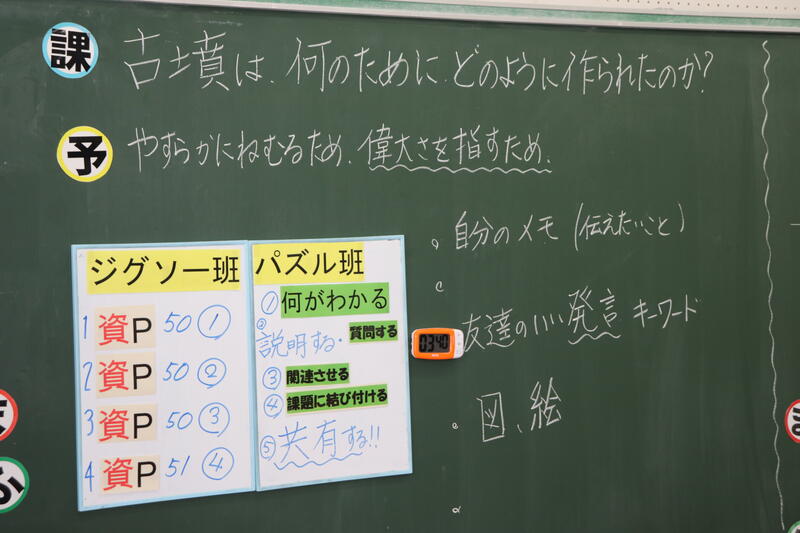 課 古墳は、何のために、どのように作られたのか?
予 やすらかにねむるため、偉大さを指すため、
ジグソー班
1 資P 50 ①
2 資P 50 ②
3 資P 50 ③
4 資P 51 ④
パズル班
① 何がわかる
② 説明する・質問する
③ 関連させる
④ 課題に結び付ける
⑤ 共有する!!
自分のメモ (伝えたいこと)
友達のいい発言 キーワード
03:40
図、絵
ふ